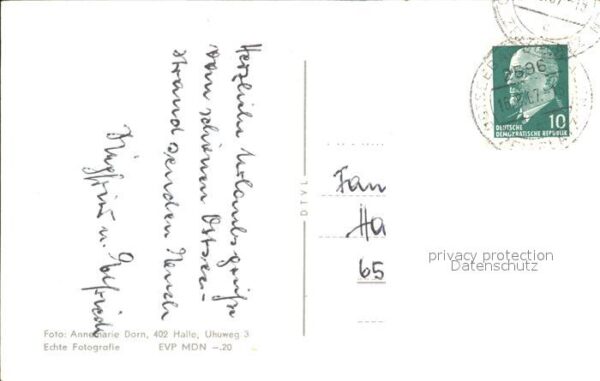 Herzliche Urlaubsgrüße
vom schönen Ostsee-
strand senden Euch
Siegfried u. Elfriede
Fam
Ha
65
2596
DEUTSCHE
DEMOKRATISCHE REPUBLIK
10
privacy protection
Datenschutz
Foto: Annemarie Dorn, 402 Halle, Uhuweg 3
Echte Fotografie EVP MDN —.20